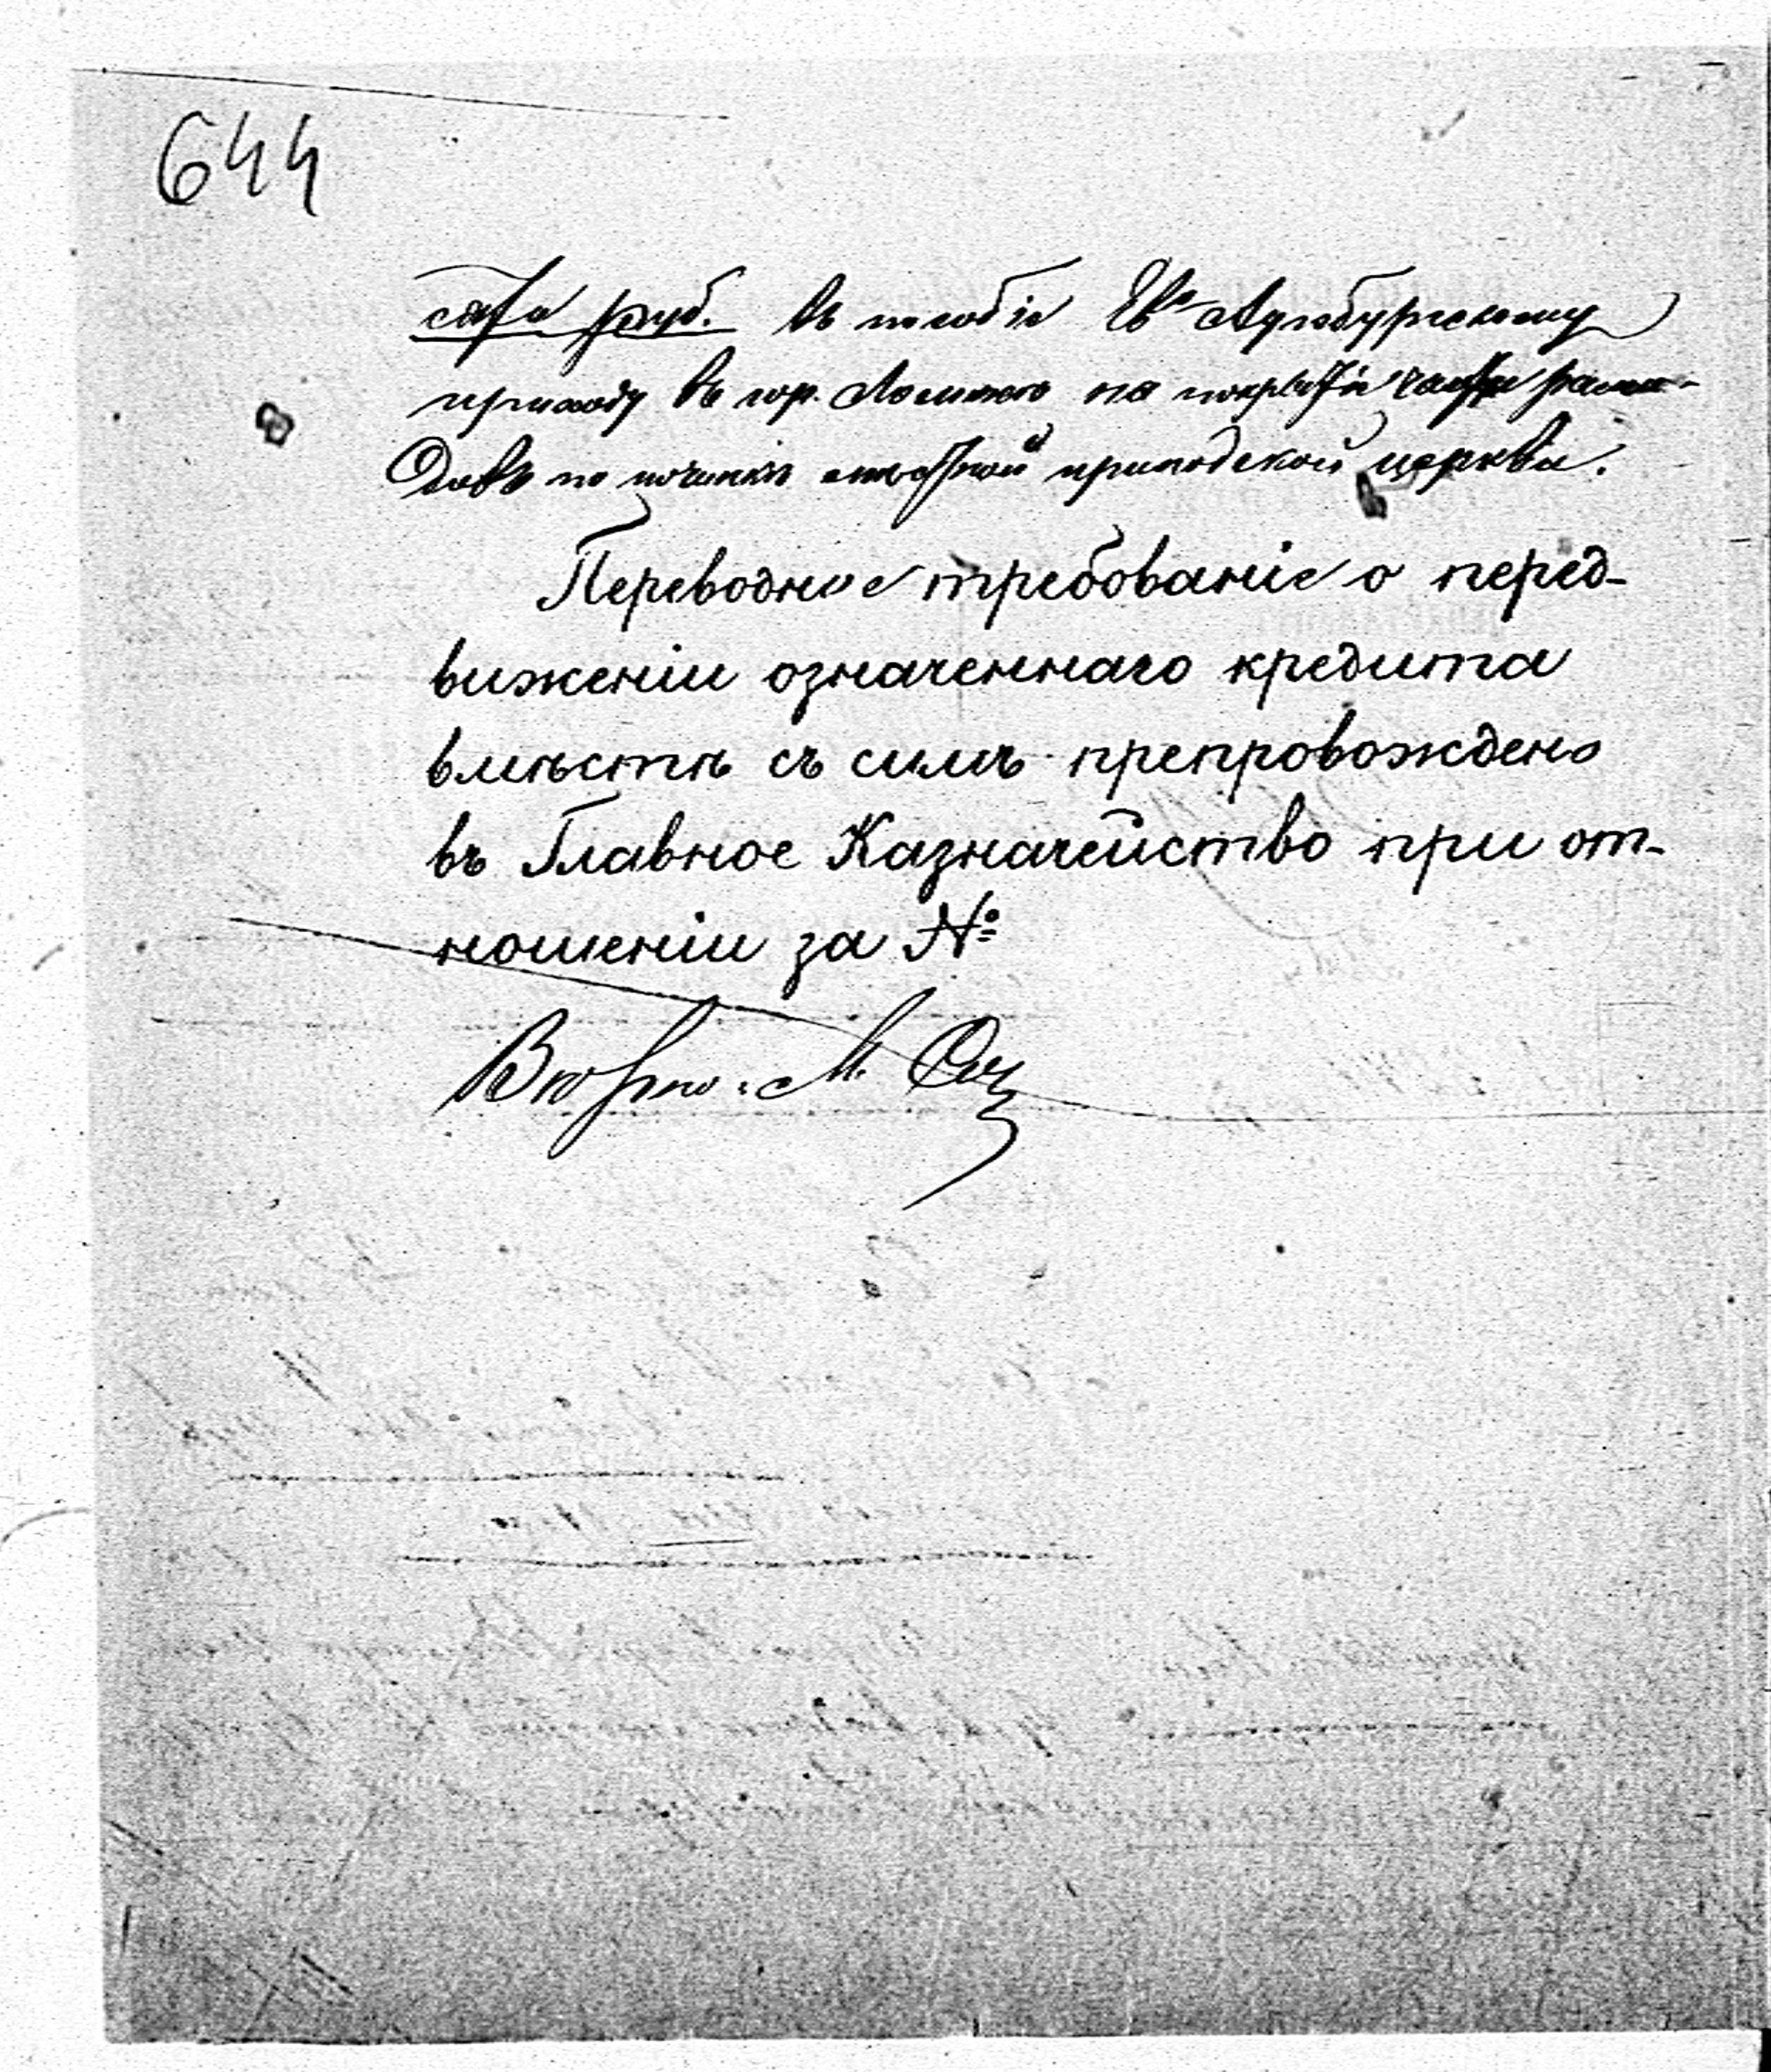 644
ста руб. въ пособіе Ев. Аугсбургскому
приходу въ гор. Ломжѣ на покрытіе части расхо-
довъ по починкѣ мѣстной приходской церкви.
Переводное требованіе о перед-
виженіи означеннаго кредита
вмѣстѣ съ симъ препровождено
въ Главное Казначейство при от-
ношеніи за №